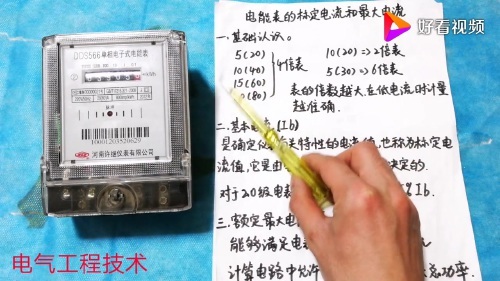 好看视频
DDS566单相电子式电能表
10001203520629
河南许继仪表有限公司
电气工程技术
电能表的标定电流和最大电流
一.基础认识。
5(20)
10(40)
15(60)
(80)
4倍表
10(20)=>2倍表
5(30)=>6倍表
表的倍数越大,在低电流时计量
越准确.
二.基本电 (Ib)
是确定 关特性的电流值,也称为标定电
流值,它是由 决定的.
对于2.0级电表 % Ib.
三.额定最大电
能够满足电
计算电路中允许 总功率.